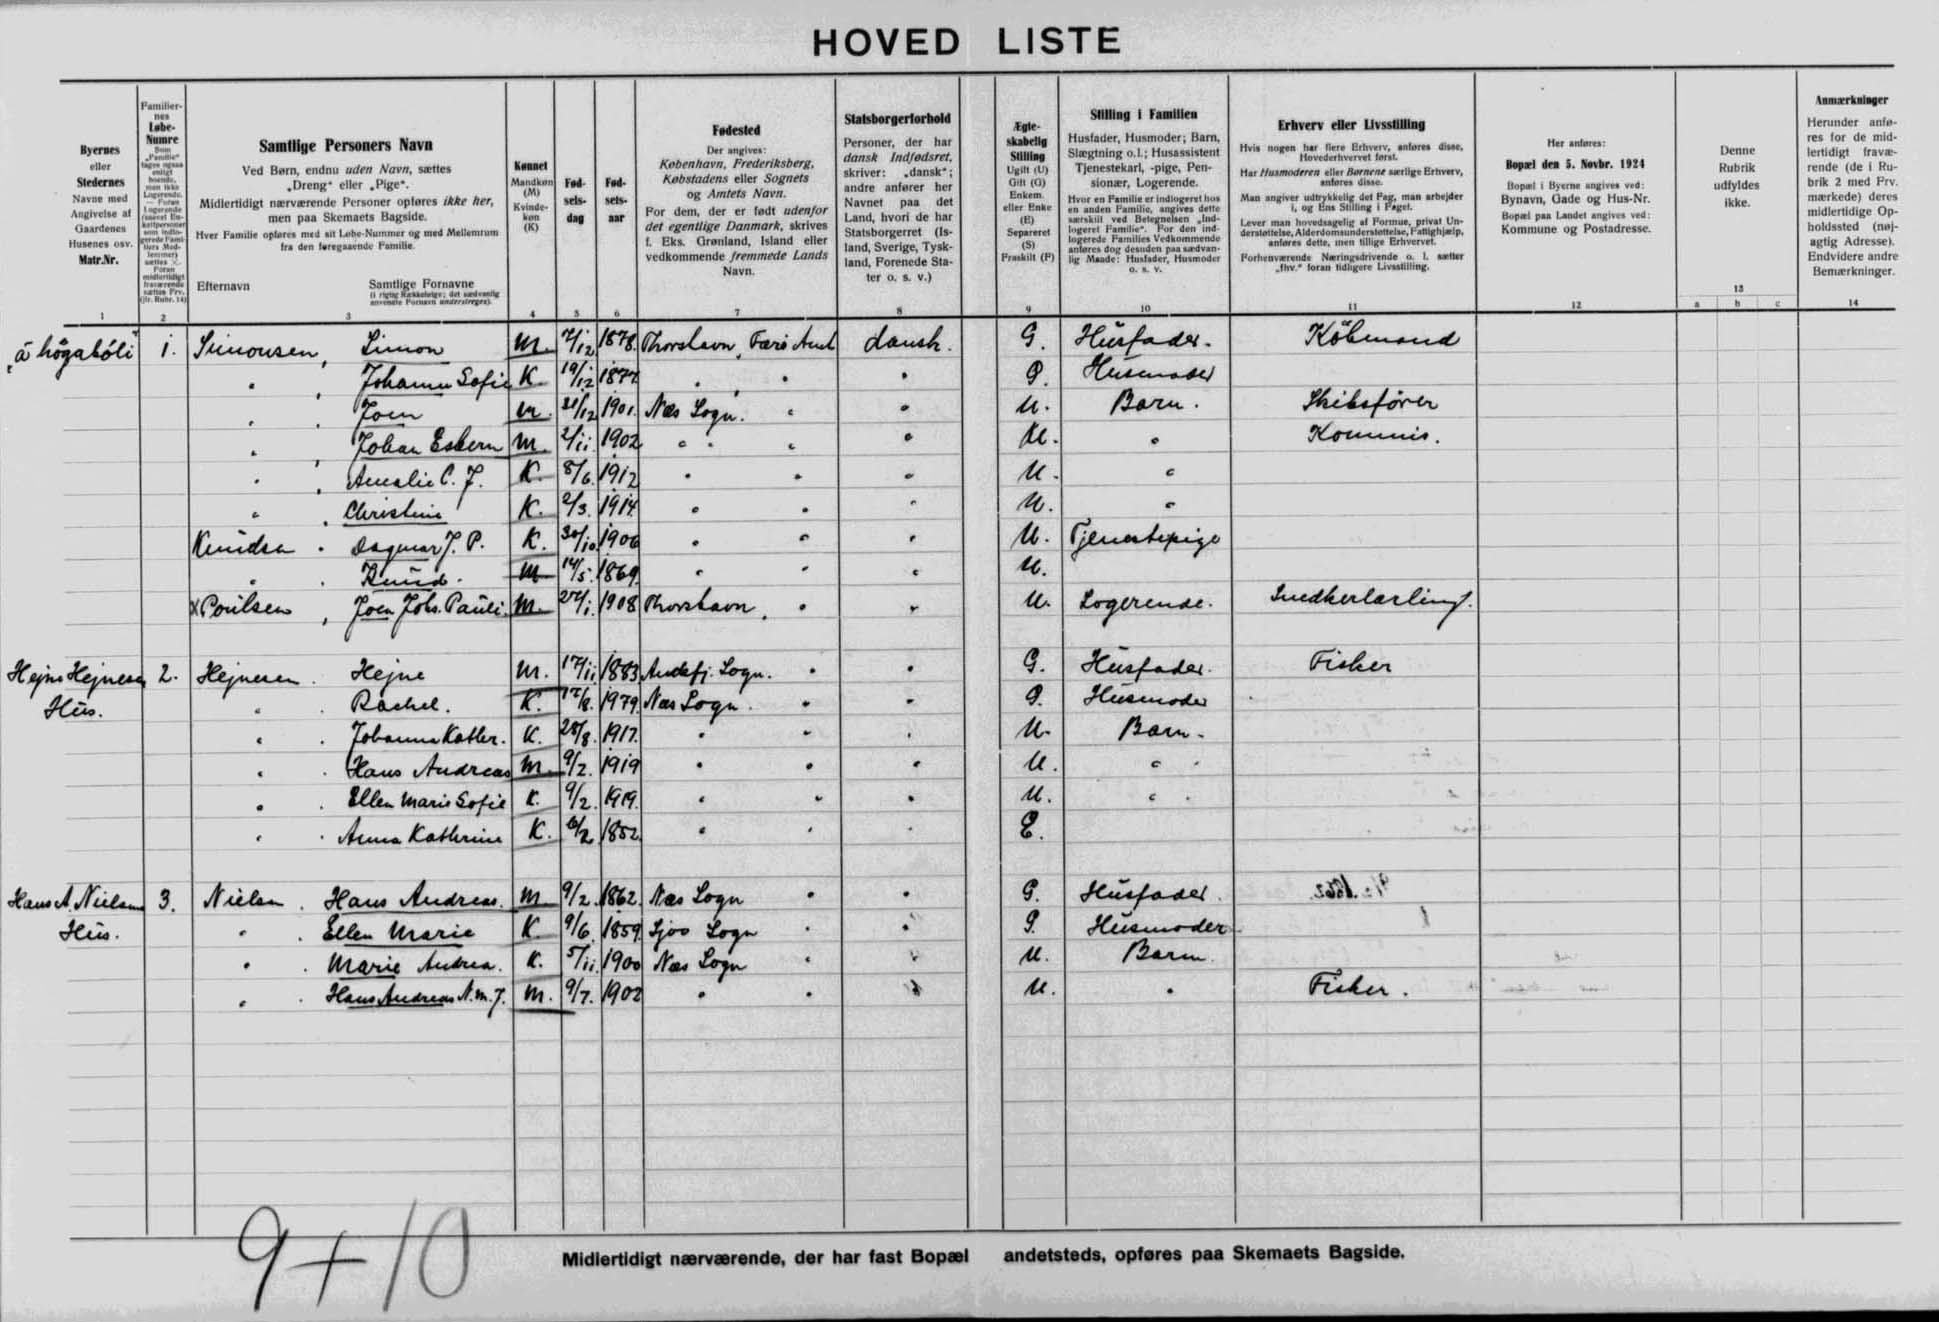 HOVED LISTE
Byernes
eller
Stedernes
Navne med
Angivelse af
Gaardenes
Husenes osv.
Matr.Nr.
1
Familier-
nes
Løbe-
Numre
2
Samtlige Personers Navn
Ved Børn, endnu uden Navn, sættes
„Dreng“ eller „Pige“.
Midlertidigt nærværende Personer opføres ikke her,
men paa Skemaets Bagside.
Hver Familie opføres med sit Løbe-Nummer og med Mellemrum
fra den foregaaende Familie.
Efternavn
Samtlige Fornavne
(i rigtig Rækkefølge; det sædvanlig
anvendte Fornavn understreges).
3
Kønnet
Mandkøn
(M)
Kvinde-
køn
(K)
4
Fød-
sels-
dag
5
Fød-
sels-
aar
6
Fødested
Der angives:
København, Frederiksberg,
Købstadens eller Sognets
og Amtets Navn.
For dem, der er født udenfor
det egentlige Danmark, skrives
f. Eks. Grønland, Island eller
vedkommende fremmede Lands
Navn.
7
Statsborgerforhold
Personer, der har
dansk Indfødsret,
skriver: „dansk“;
andre anfører her
Navnet paa det
Land, hvori de har
Statsborgerret (Is-
land, Sverige, Tysk-
land, Forenede Sta-
ter o. s. v.)
8
Ægte-
skabelig
Stilling
Ugift (U)
Gift (G)
Enkem.
eller Enke
(E)
Separeret
(S)
Fraskilt (F)
9
Stilling i Familien
Husfader, Husmoder; Barn,
Slægtning o.l.; Husassistent
Tjenestekarl, -pige, Pen-
sionær, Logerende.
Hvor en Familie er indlogeret hos
en anden Familie, angives dette
særskilt ved Betegnelsen „Ind-
logeret Familie“. For den ind-
logerede Families Vedkommende
anføres dog desuden paa sædvan-
lig Maade: Husfader, Husmoder
o. s. v.
10
Erhverv eller Livsstilling
Hvis nogen har flere Erhverv, anføres disse,
Hovederhvervet først.
Har Husmoderen eller Børnene særlige Erhverv,
anføres disse.
Man angiver udtrykkelig det Fag, man arbejder
i, og Ens Stilling i Faget.
Lever man hovedsagelig af Formue, privat Un-
derstøttelse, Alderdomsunderstøttelse, Fattighjælp,
anføres dette, men tillige Erhvervet.
Forhenværende Næringsdrivende o. l. sætter
„fhv.“ foran tidligere Livsstilling.
11
Her anføres:
Bopæl den 5. Novbr. 1924
Bopæl i Byerne angives ved:
Bynavn, Gade og Hus-Nr.
Bopæl paa Landet angives ved:
Kommune og Postadresse.
12
Denne
Rubrik
udfyldes
ikke.
13
a b c
Anmærkninger
Herunder anfø-
res for de mid-
lertidigt fravæ-
rende (de i Ru-
brik 2 med Frv.
mærkede) deres
midlertidige Op-
holdssted (nøj-
agtig Adresse).
Endvidere andre
Bemærkninger.
14
1. Simonsen, Simon M. 1878. Thorshavn, Færø Amt dansk. G. Husfader. Købmand
" , Johanne Sofie K. 19/12 1877. " " " G. Husmoder
" . Joen M. 21/12 1901. Næs Sogn. " " U. Barn. Skibsfører
" , Johan Esbern M. 2/11. 1902 " " " " U. " Kommis.
" , Amalie C. J. K. 8/6. 1912 " " " U. "
" . Christine K. 2/3. 1914. " " " U. "
Knudsen . Dagmar J. P. K. 30/10. 1906 " " " U. Tjenestepige
" . Knud. M 14/5. 1869. " " " U.
x Poulsen , Joen Johs. Pauli. M. 27/1. 1908 Thorshavn, " " U. Logerende. Snedkerlærling.
Hejns Hejnesen 2. Hejnesen . Hejne M. 17/11 1883 Andefj. Sogn. " " G. Husfader. Fisker
Hús. " . Rachel. K. 12/8. 1979. Næs Sogn. " " G. Husmoder
" . Johanna Kathr. K. 28/8. 1917. " " " U. Barn.
" . Hans Andreas M. 9/2. 1919 " " " U. "
" . Ellen Marie Sofie K. 9/2. 1919. " " " U. "
" . Anna Kathrine K. 1852. " " " E.
Hans A. Nielsens 3. Nielsen . Hans Andreas. M. 9/2. 1862. Næs Sogn " " G. Husfader.
Hús. " . Ellen Marie K. 9/6. 1859. Sjov Sogn " " G. Husmoder
" . Marie Andrea. K. 5/11. 1900 Næs Sogn " " U. Barn.
" . Hans Andreas N. M. J. M. 9/7. 1902 " " " U. " Fisker.
9+10
Midlertidigt nærværende, der har fast Bopæl andetsteds, opføres paa Skemaets Bagside.